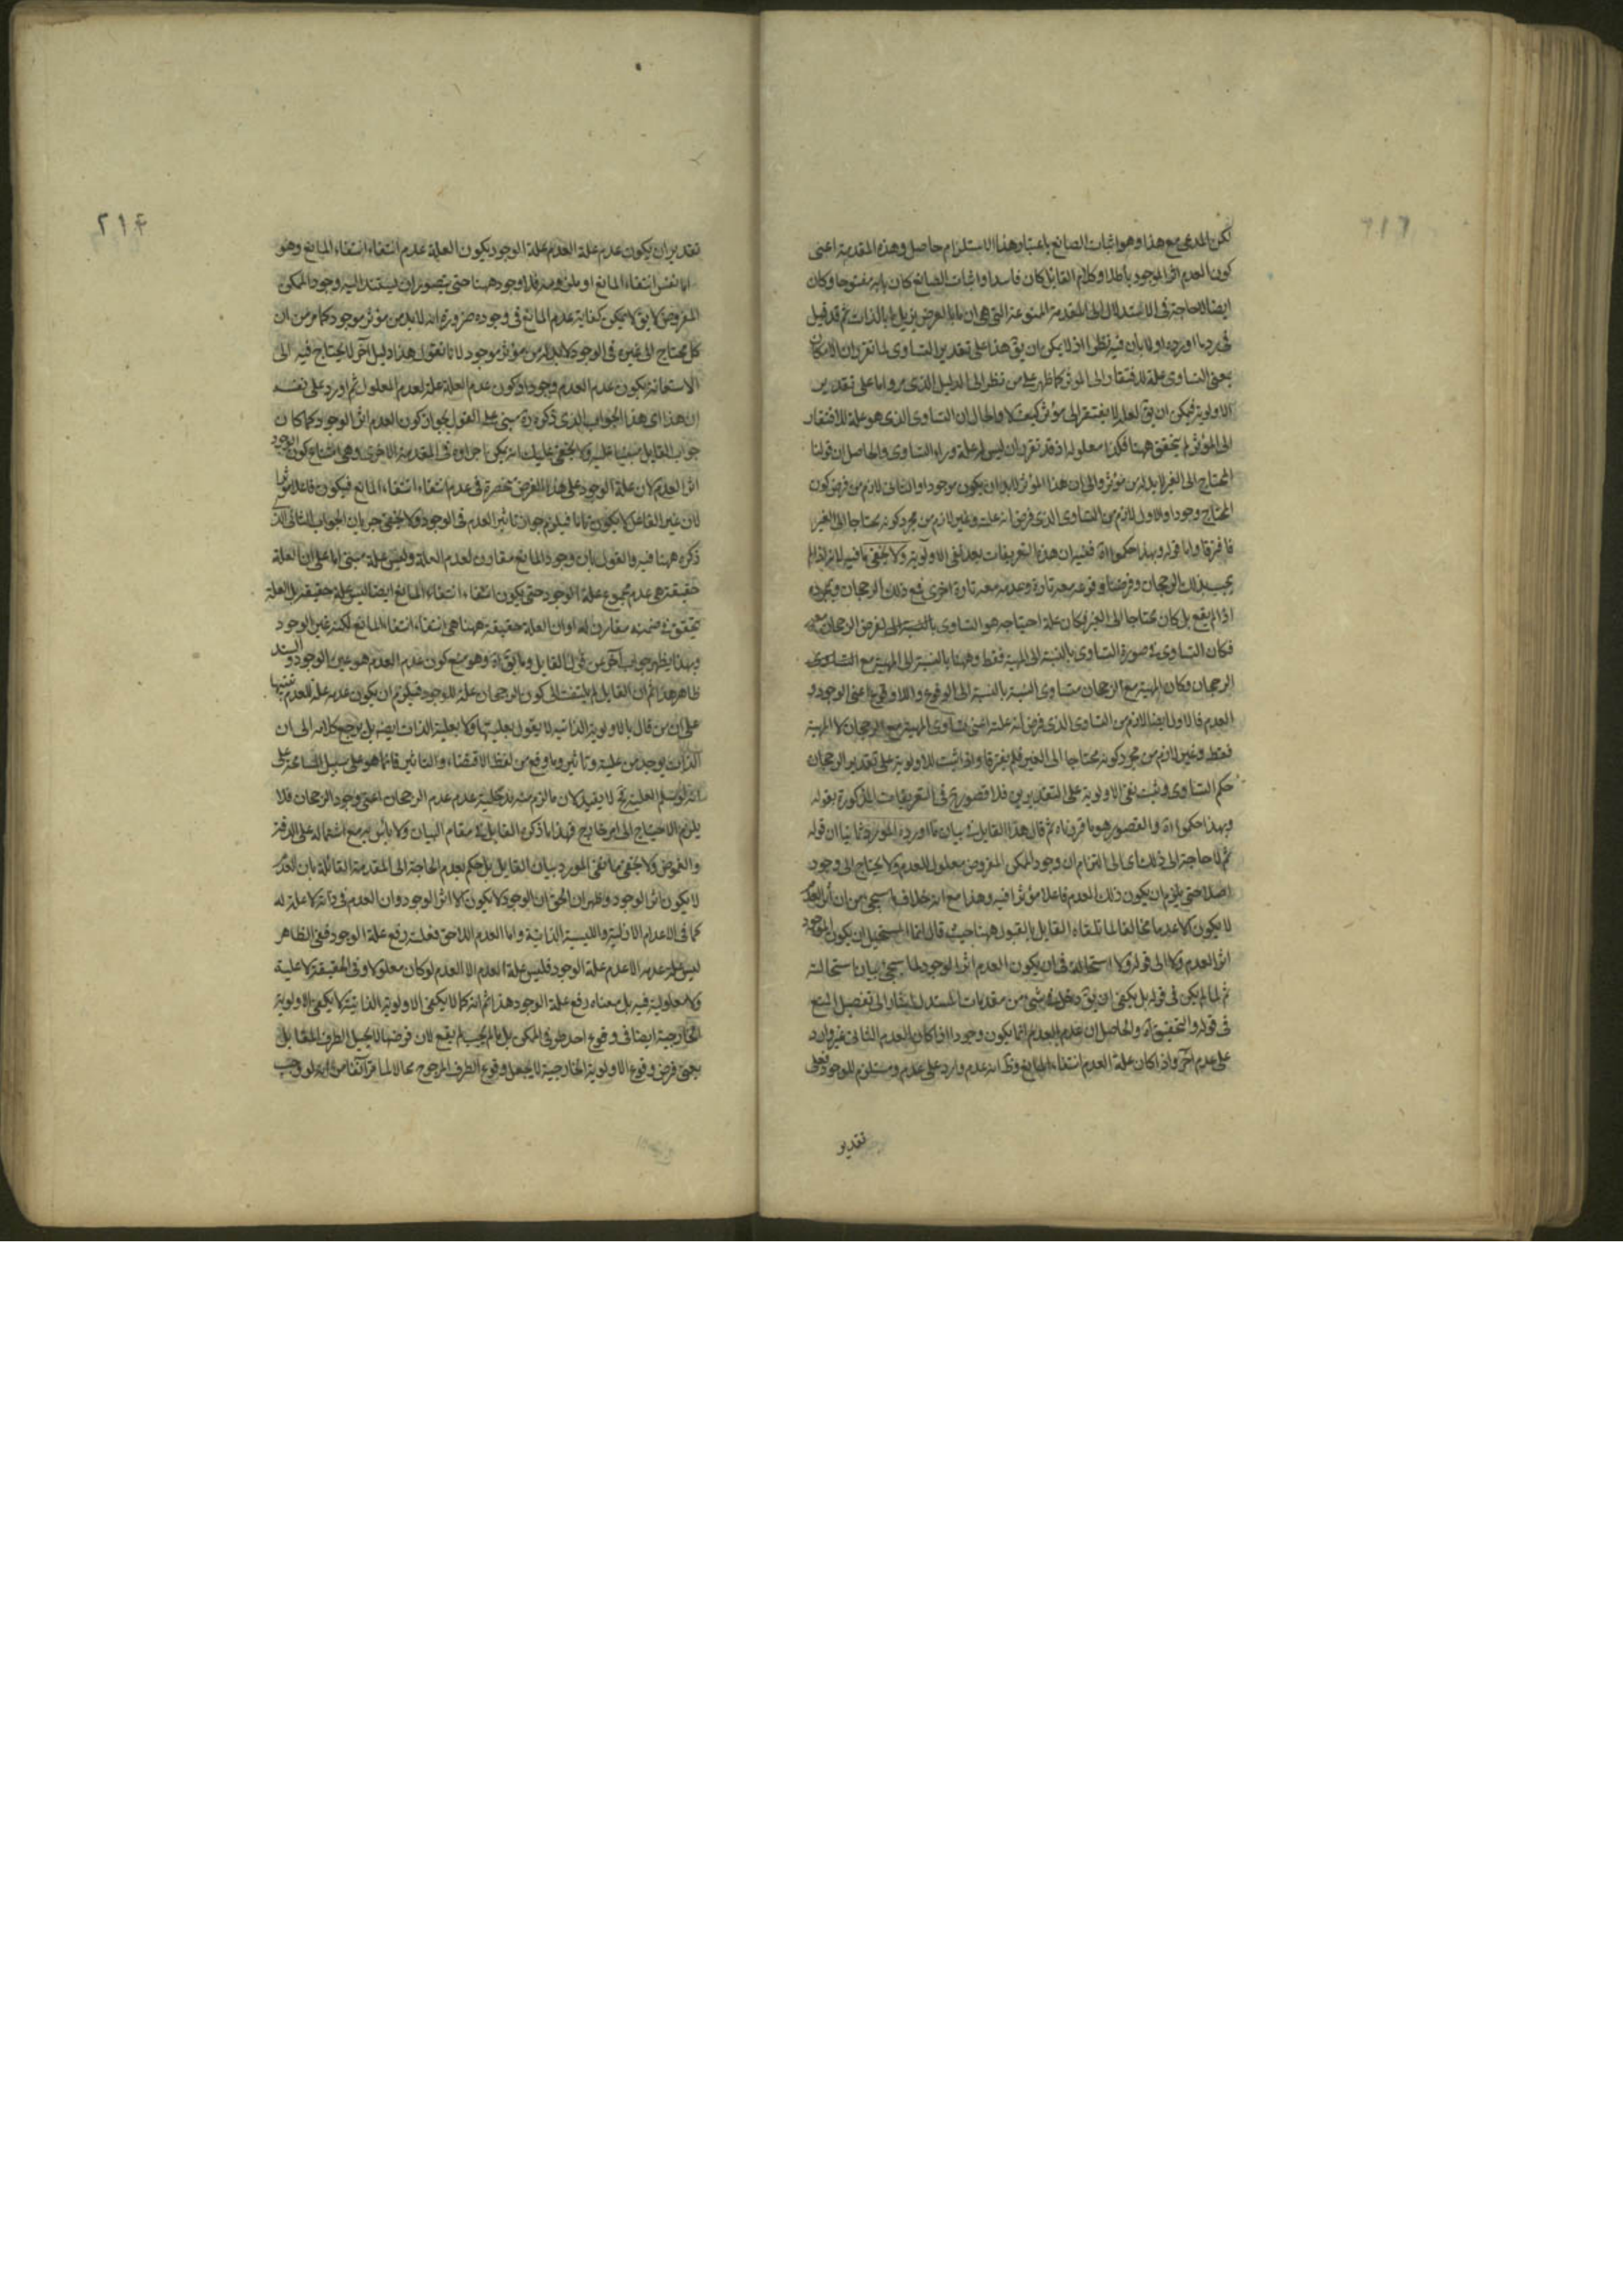 لكن المدعى مع هذا وهو اثبات الصانع باعتبار هذا الاستلزام حاصل وهذه المقدمة اعنى
كون العدم اثر الموجود باطلا وكلام القائل كان فاسدا واثبات الصانع كان بابه مفتوحا وكان
ايضا لا حاجة فى الاستدلال الى المقدمة الممنوعة التى هى ان ما بالعرض يزيل ما بالذات ثم قد قيل
فى رد ما اورده اولا بأن فيه نظرا اذ لا يمكن ان يق هذا على تقدير التساوى لما تقرر ان الامكان
بمعنى التساوى علة للافتقار الى المؤثر كما ظهر على من نظر الى الدليل الذى مر واما على تقدير
الاولوية فيمكن ان يق لعله لا يفتقر الى مؤثر كيف لا والحال ان التساوى الذى هو علة للافتقار
الى المؤثر لم يتحقق ههنا فكذا معلوله اذ قد تقرر ان ليس له علة وراء التساوى والحاصل ان قولنا
المحتاج الى الغير لا بد له من مؤثر والى ان هذا المؤثر لا بد ان يكون موجودا والثانى لازم من فرض كون
المحتاج وجودا والاول لازم من التساوى الذى فرض انه علة وغير لازم من مجرد كونه محتاجا الى الغير
فافترقا واما قوله وبهذا حكموا اه ففيه ان هذه التعريفات بعد نفى الاولوية ولا يخفى ما فيه لانه اذا لم
يجب بذلك الرجحان وفرضنا وقوعه معه تارة وعدمه معه تارة اخرى فمع ذلك الرجحان وبمجرده
اذا لم يقع بل كان محتاجا الى الغير فكان علة احتياجه هو التساوى بالنسبة الى لفرض الرجحان معه
فكان التساوى فى صورة التساوى بالنسبة الى المهية فقط وههنا بالنسبة الى المهية مع التساوى
الرجحان وكان المهية مع الرجحان متساوى النسبة بالنسبة الى الوقوع واللاوقوع اعنى الوجود و
العدم فالاول ايضا لازم من التساوى الذى فرض انه علة اعنى تساوى المهية مع الرجحان لا المهية
فقط وغير لازم من مجرد كونه محتاجا الى الغير فلم يفترقا واذا ثبت للاولوية على تقدير الرجحان
حكم التساوى وثبت نفى الاولوية على التقديرين فلا قصور ح فى التعريفات المذكورة بقوله
وبهذا حكموا اه والقصور هو ما قررناه ثم قال هذا القايل فى بيان ما اورده المورد ثانيا ان قوله
ثم لا حاجة الى ذلك اى الى التزام ان وجود الممكن المفروض معلول للعدم ولا يحتاج الى وجود
اصلا حتى يلزم ان يكون ذلك العدم فاعلا مؤثرا فيه وهذا مع انه خلاف ما سيجئ من ان أثر العدم
لا يكون الا عدما مخالفا لما تلقاه القايل بالقبول ههنا حيث قال انما المستحيل ان يكون الوجود
اثر العدم ولا الى قوله ولا استحالة فى ان يكون العدم اثر الوجود لما سيجئ بيان استحالته
ثم لما لم يكن فى قوله بل يكفى ان يق دخل فى شئ من مقدمات المستدل اشار الى تفصيل المنع
فى قوله والتحقيق اه والحاصل ان عدم العدم انما يكون وجودا اذا كان العدم الثانى غير وارد
على عدم آخر واذا كان علة العدم انتفاء المانع وظ انه عدم وارد على عدم ومستلزم للوجود فعلى
تقدير
٢١٤
تقدير ان يكون عدم علة العدم علة الوجود يكون العلة عدم انتفاء انتفاء المانع وهو
اما نفس انتفاء المانع او ملزومه فلا وجود ههنا حتى يتصور ان يستند اليه وجود الممكن
المفروض لا يق لا يمكن كفاية عدم المانع فى وجوده ضرورة انه لا بد من مؤثر موجود كما مر من ان
كل محتاج الى غيره فى الوجود لا بد له من مؤثر موجود لانا نقول هذا دليل آخر لا يحتاج فيه الى
الاستعانة بكون عدم العدم وجودا وكون عدم العلة علة لعدم المعلول ثم اورد على نفسه
ان هذا اى هذا الجواب الذى ذكره مبنى على القول بجواز كون العدم اثر الوجود كما كان
جواب القايل مبنيا عليه ولا يخفى عليك انه يمكن اجراؤه فى المقدمة الاخرى وهى امتناع كون الوجود
اثر العدم لان علة الوجود على هذا الفرض منحصرة فى عدم انتفاء انتفاء المانع فيكون فاعلا مؤثرا
لان غير الفاعل لا يكون تاما فيلزم جواز تاثير العدم فى الوجود ولا يخفى جريان الجواب الثانى الذى
ذكره ههنا فيه والقول بان وجود المانع مقارن لعدم العلة وليس علة مبنى اما على ان العلة
حقيقة هى عدم مجموع علة الوجود حتى يكون انتفاء انتفاء المانع ايضا ليس علة حقيقة بل العلة
تحقق فى ضمنه مقارن له او ان العلة حقيقة ههنا هى انتفاء انتفاء المانع لكنه غير الوجود
وبهذا يظهر جواب آخر عن قول القايل وما يق اه وهو منع كون عدم العدم هو عين الوجود والسند
ظاهر هذا ثم ان القايل لم يلتفت الى كون الرجحان علة للوجود فيلزم ان يكون عدمه علة للعدم تنبيها
على ان من قال بالاولوية الذاتيه لا يقول بعليتها ولا بعلية الذات ايضا بل يرجع كلامه الى ان
الذات يوجد من علية وتاثير وما وقع من لفظ الاقتضاء والتاثير فانما هو على سبيل المسامحة على
انه لو سلم العلية ح لا يفيد لان ما لزم منه مدخلية عدم عدم الرجحان اعنى وجود الرجحان فلا
يلزم الاحتياج الى امر خارج فهذا ما ذكره القايل فى مقام البيان ولا بأس به مع اشتماله على الدقة
والغموض ولا يخفى ما نفى المورد بيان القايل بل حكم بعدم الحاجة الى المقدمة القائلة بان العدم
لا يكون اثر الوجود وظهر ان الحق ان الوجود لا يكون الا اثر الوجود وان العدم فى ذاته لا علة له
كما فى الاعدام الازلية والليسية الذاتية واما العدم اللاحق فعلته رفع علة الوجود ففى الظاهر
ليس علة عدمه الا عدم علة الوجود فليس علة العدم الا العدم لو كان معلولا وفى الحقيقة لا علية
ولا معلولية فيه بل معناه رفع علة الوجود هذا ثم انه كما لا يكفى الاولوية الذاتية لا يكفى الاولوية
الخارجية ايضا فى وقوع احد طرفى الممكن بل ما لم يجب لم يقع لان فرضها لا يحيل الطرف المقابل
يعنى فرض وقوع الاولوية الخارجية لا يجعل وقوع الطرف المرجوح محالا لما مر آنفا من انه لو وجب